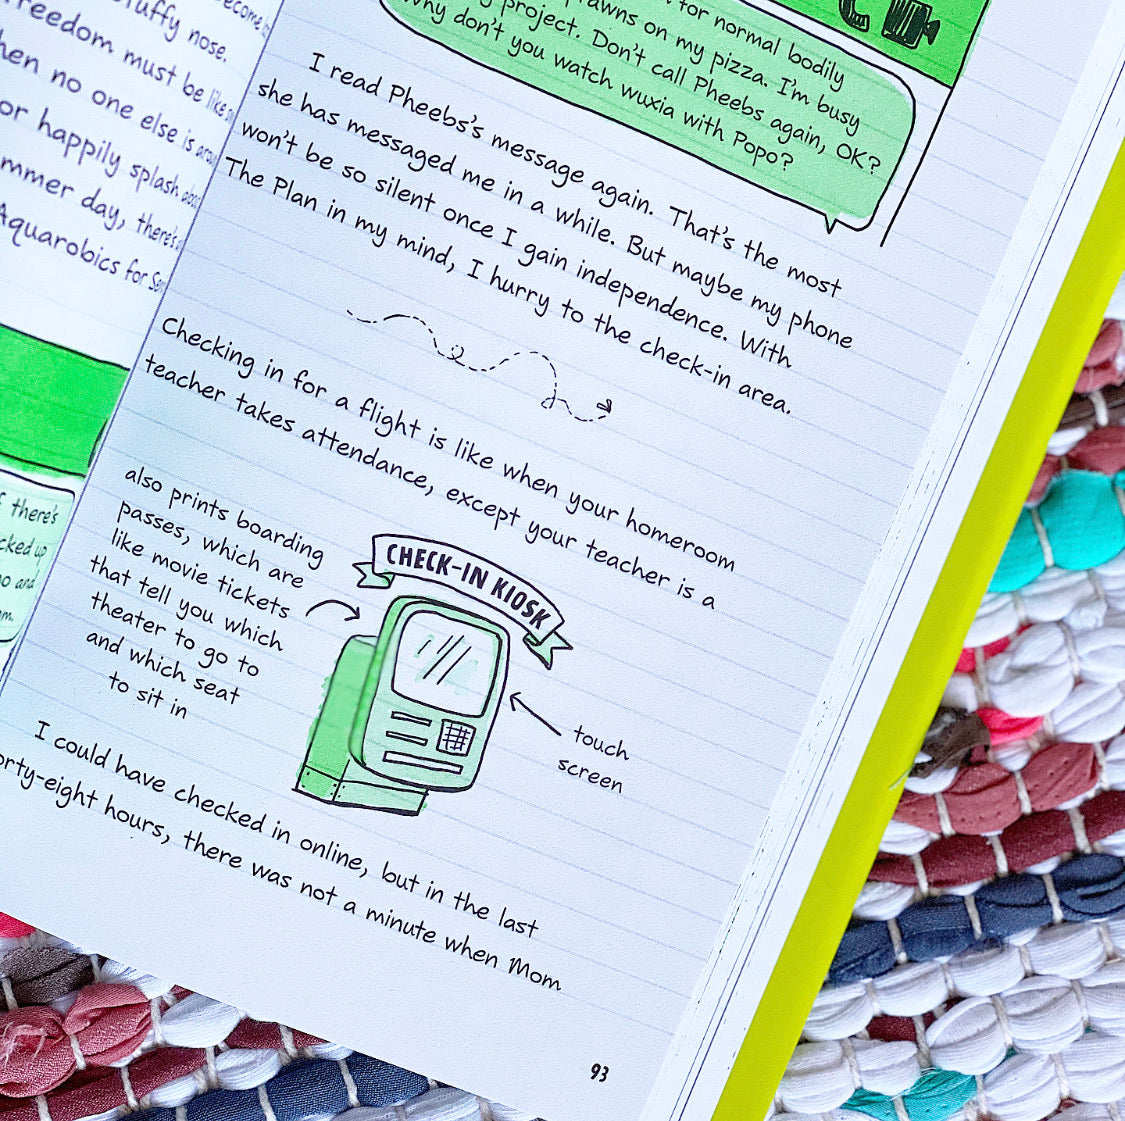 become
stuffy nose.
freedom must be like
when no one else is
or happily splash
summer day, there's
Aquarobics for
there's
no and
for normal bodily
on my pizza. I'm busy
project. Don't call Pheebs again, OK?
Why don't you watch wuxia with Popo?
I read Pheebs's message again. That's the most
she has messaged me in a while. But maybe my phone
won't be so silent once I gain independence. With
The Plan in my mind, I hurry to the check-in area.
Checking in for a flight is like when your homeroom
teacher takes attendance, except your teacher is a
also prints boarding
passes, which are
like movie tickets
that tell you which
theater to go to
and which seat
to sit in
CHECK-IN KIOSK
touch
screen
I could have checked in online, but in the last
forty-eight hours, there was not a minute when Mom
93